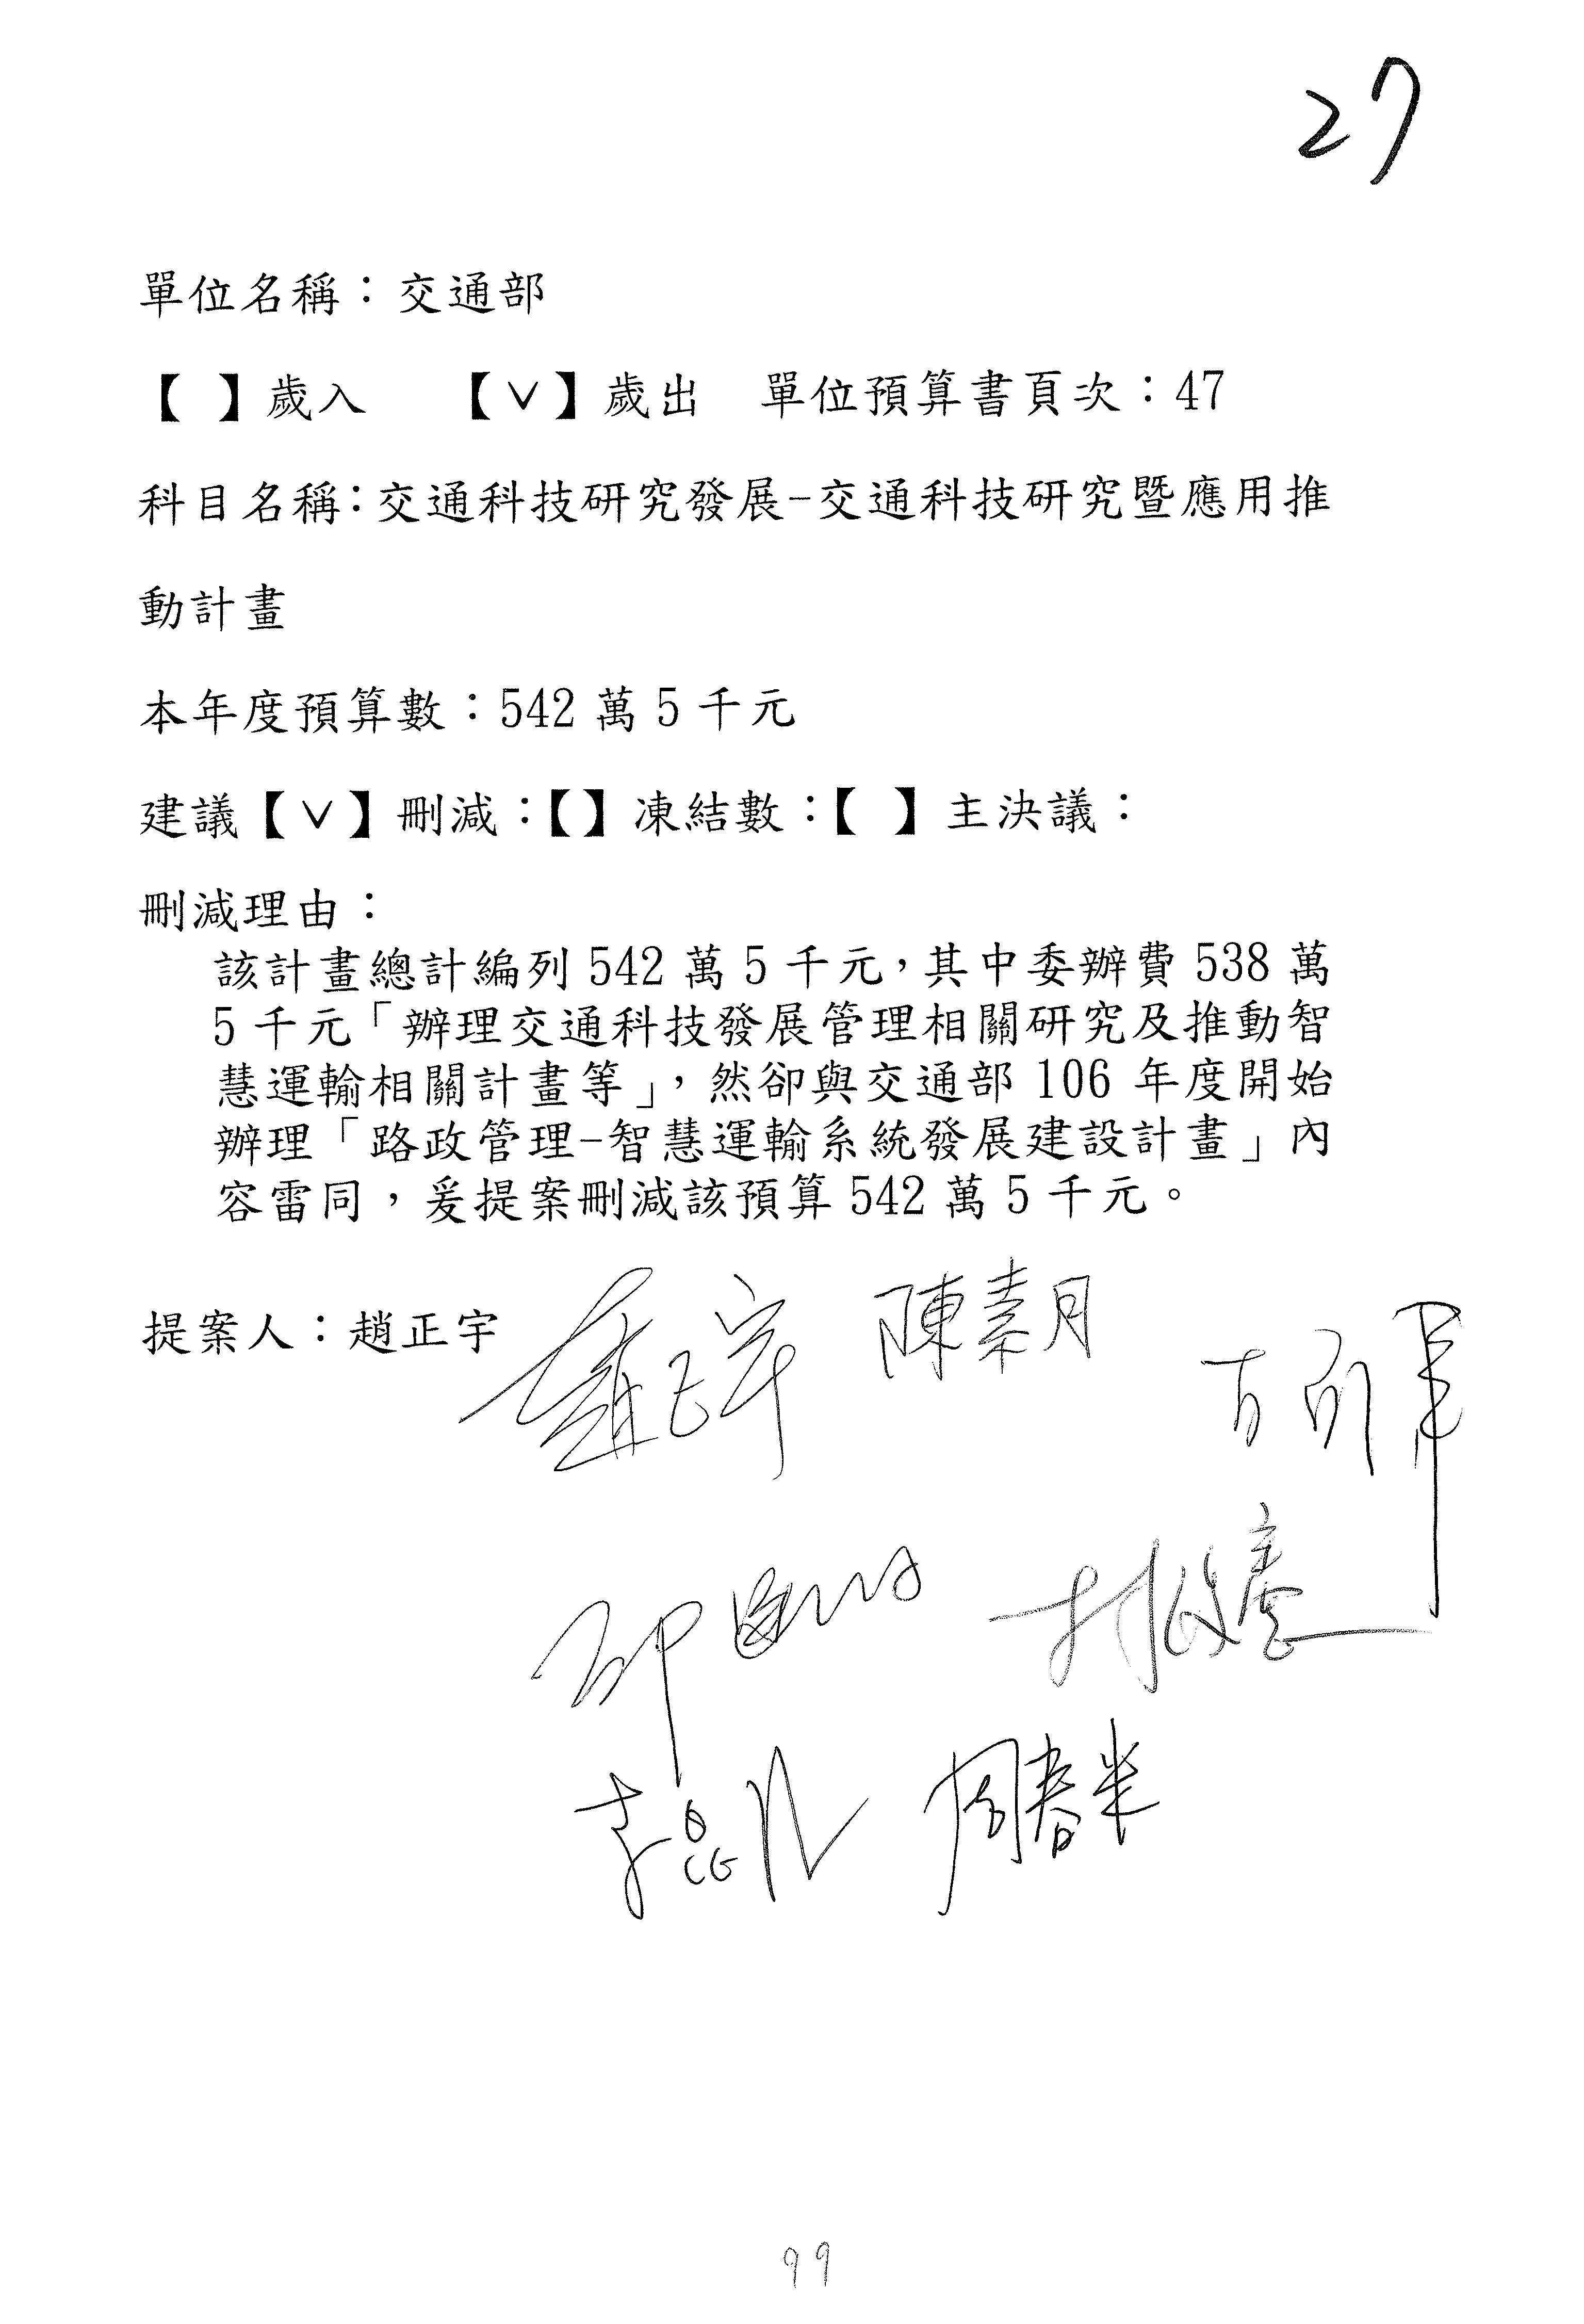 27
單位名稱：交通部
【 】歲入 【∨】歲出 單位預算書頁次：47
科目名稱：交通科技研究發展-交通科技研究暨應用推
動計畫
本年度預算數：542 萬 5 千元
建議【∨】刪減：【】凍結數：【 】主決議：
刪減理由：
該計畫總計編列 542 萬 5 千元，其中委辦費 538 萬
5 千元「辦理交通科技發展管理相關研究及推動智
慧運輸相關計畫等」，然卻與交通部 106 年度開始
辦理「路政管理-智慧運輸系統發展建設計畫」內
容雷同，爰提案刪減該預算 542 萬 5 千元。
提案人：趙正宇 趙正宇 陳素月
李昆澤 周春米
99